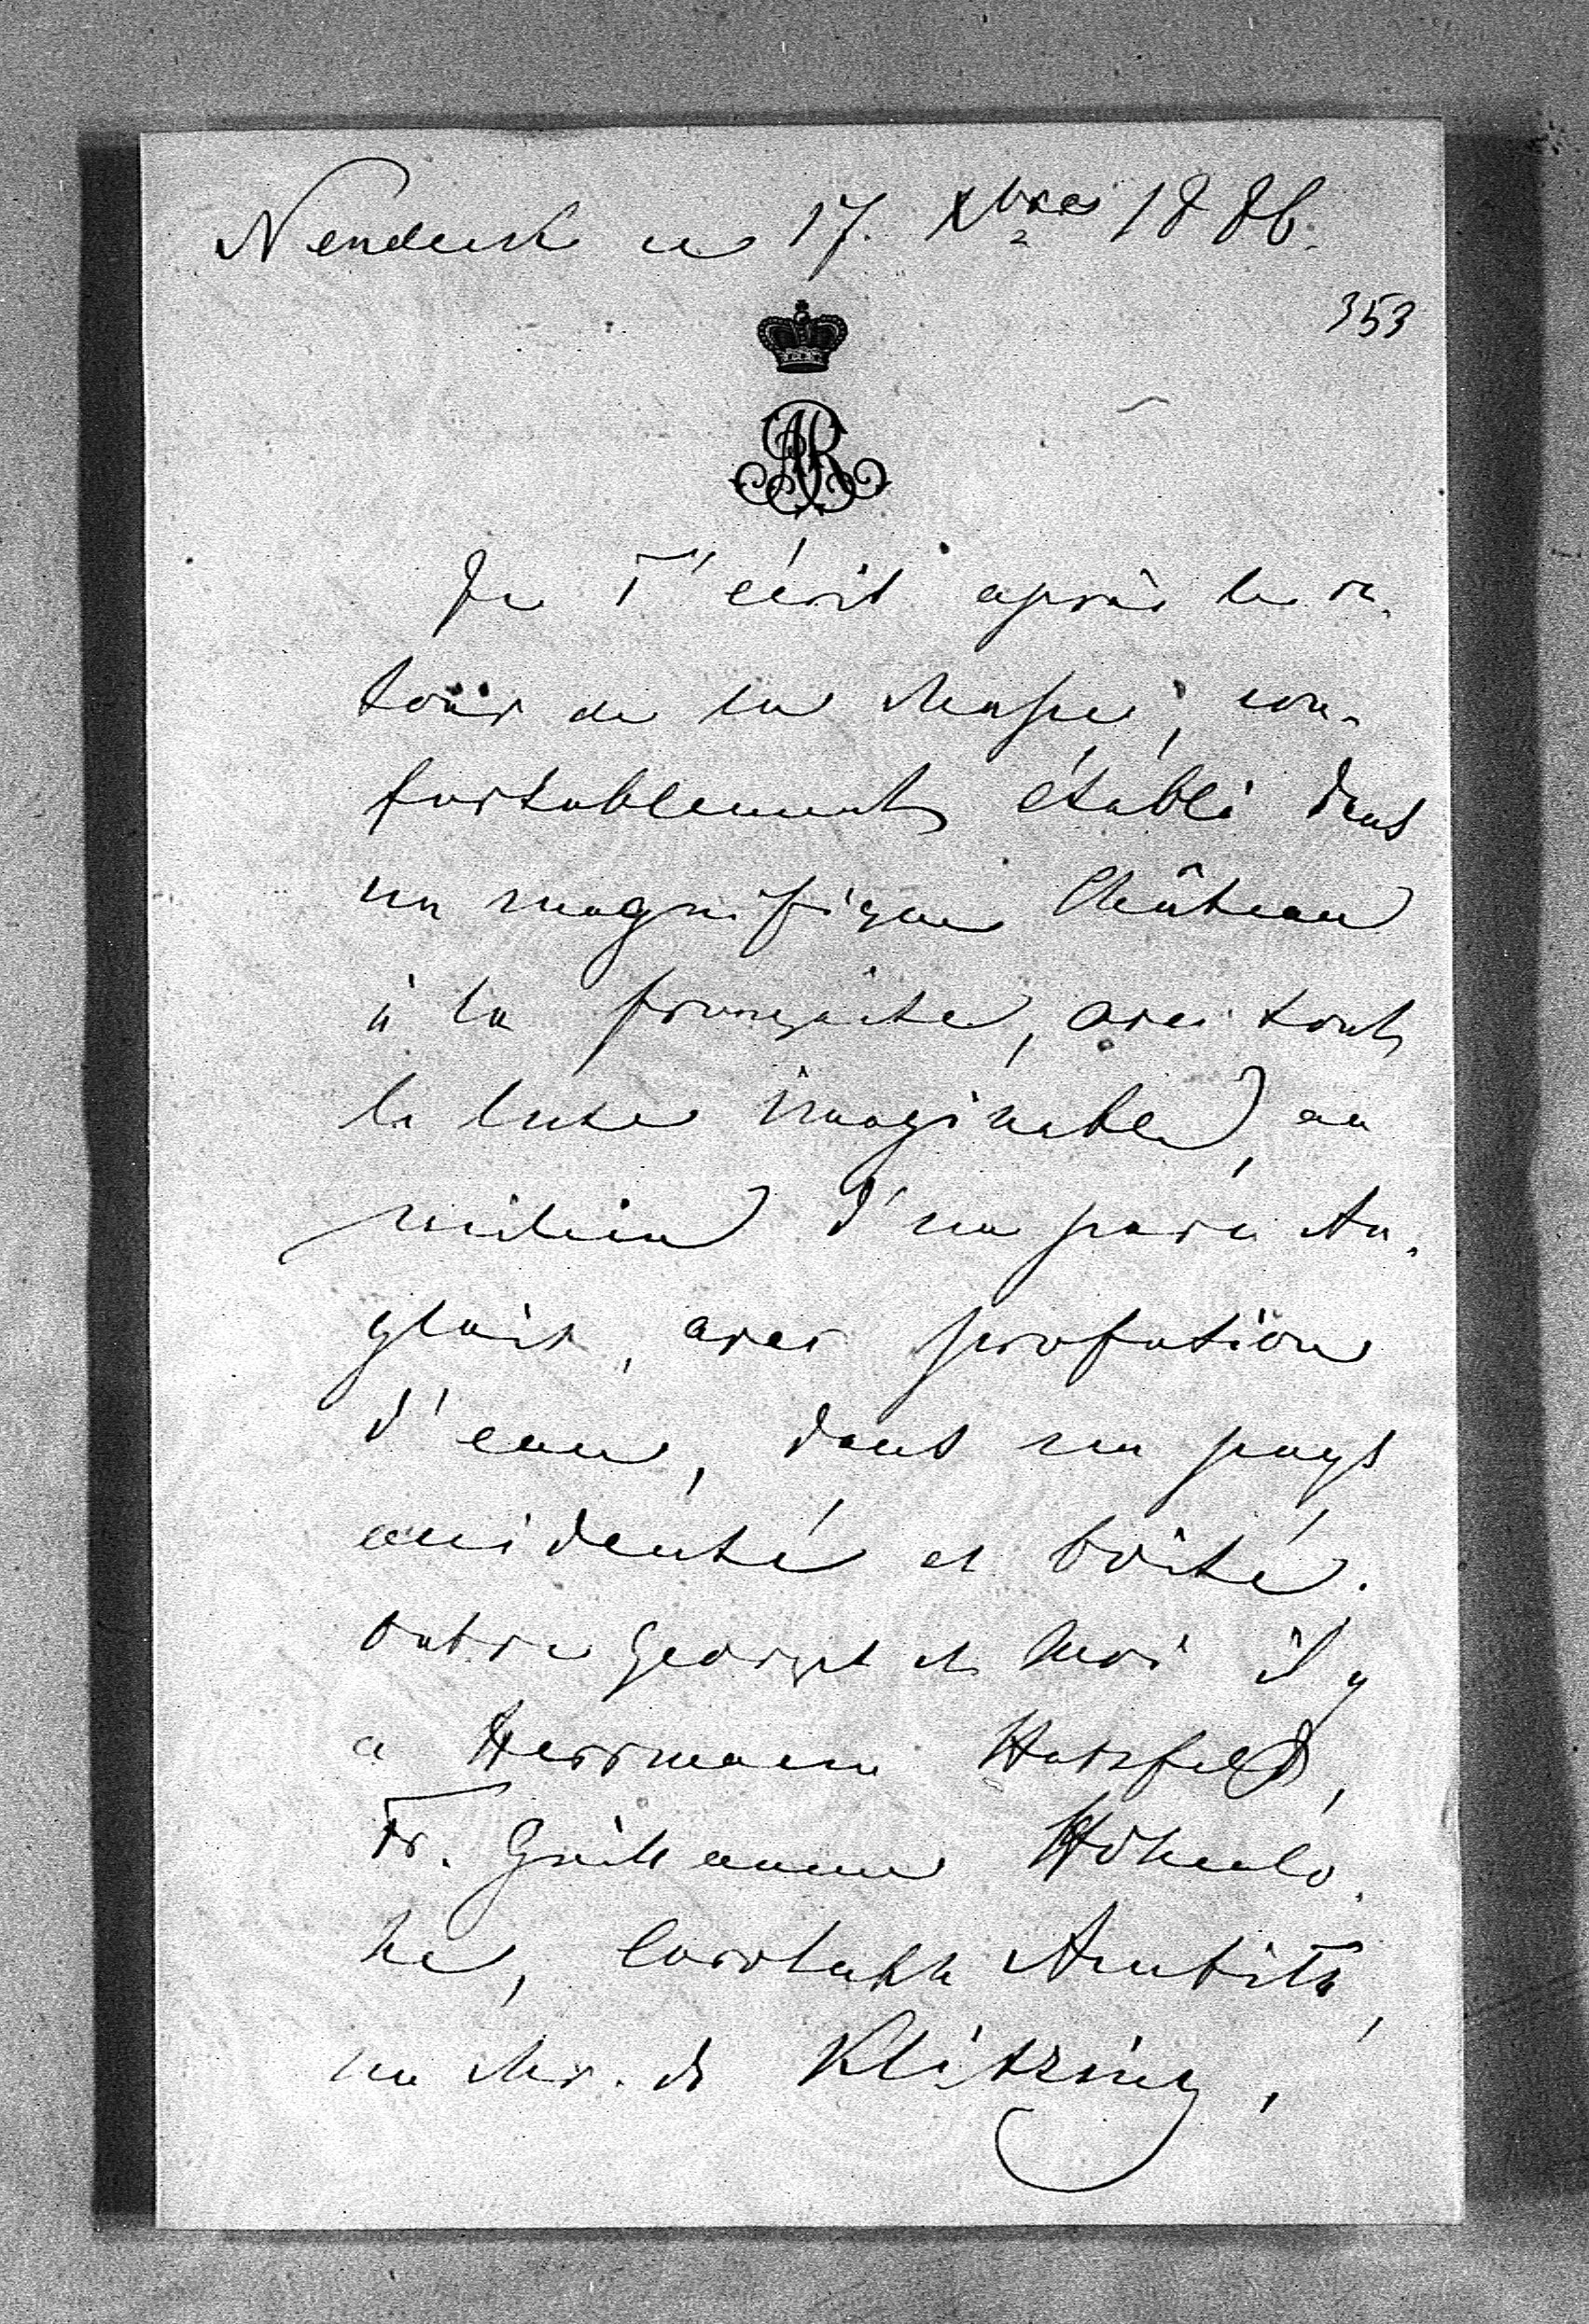 Neudeck ce 17. Xbre 1886.
353
AR
Je T'écris après le re-
tour de la chasse, con-
fortablement établi dans
un magnifique Château
à la française, avec tout
le luxe imaginable, au
milieu d'un parc An-
glais, avec profusion
d'eau, dans un pays
accidenté et boisé.
Outre Georges et Moi il y
a Herrmann Hatzfeld,
Fr. Guillaume Hohenlo-
he,
un Mr. de Klitzing,